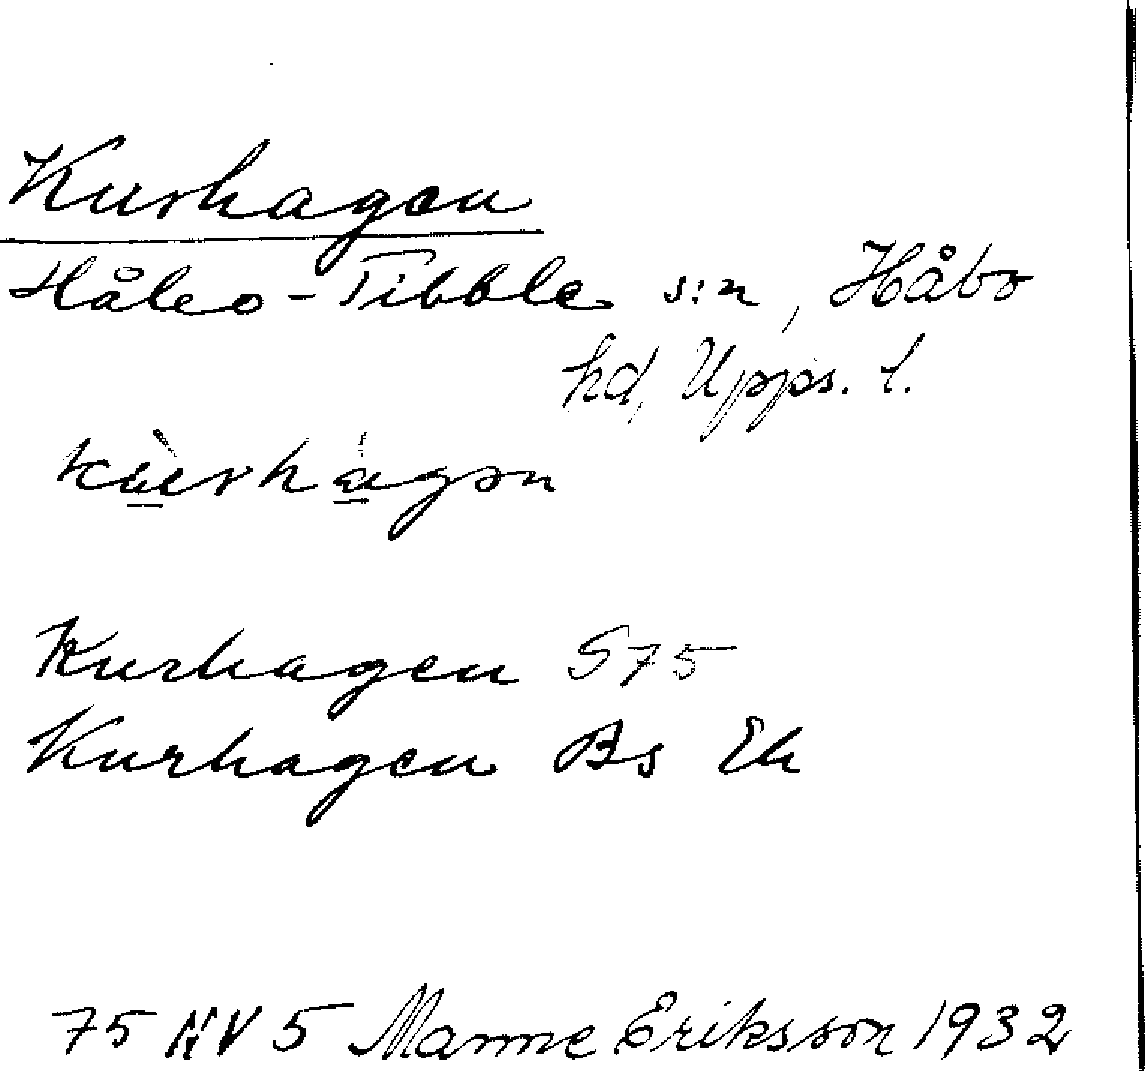 Kurhagen
Håbo-Tibble s:n, Håbo
hd, Upps. l.
Kurhagen S75
Kurhagen Bs Ek
75 NV 5 Manne Eriksson 1932